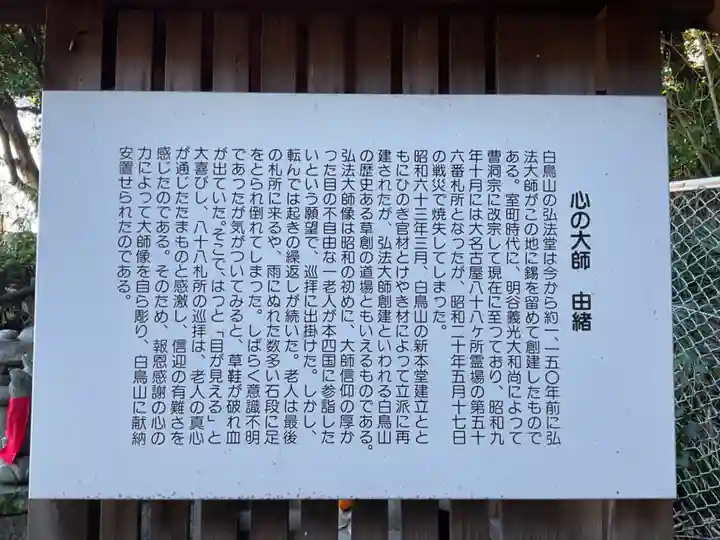 心の大師　由緒
白鳥山の弘法堂は今から約一、一五〇年前に弘
法大師がこの地に錫を留めて創建したもので
ある。室町時代に、明谷義光大和尚によって
曹洞宗に改宗して現在に至つており、昭和九
年十月には大名古屋八十八ヶ所霊場の第五十
六番札所となつたが、昭和二十年五月十七日
の戦災で焼失してしまつた。
昭和六十三年三月、白鳥山の新本堂建立とと
もにひのき官材とけやき材によつて立派に再
建されたが、弘法大師創建といわれる白鳥山
の歴史ある草創の道場ともいえるものである。
弘法大師像は昭和の初めに、大師信仰の厚か
つた目の不自由な一老人が本四国に参詣した
いという願望で、巡拝に出掛けた。しかし、
転んでは起きの繰返しが続いた。老人は最後
の札所に来るや、雨にぬれた数多い石段に足
をとられ倒れてしまつた。しばらく意識不明
であつたが気がついてみると、草鞋が破れ血
が出ていた。そこで、はつと「目が見える」と
大喜びし、八十八札所の巡拝は、老人の真心
が通じたたまものと感激し、信迎の有難さを
感じたのである。そのため、報恩感謝の心の
力によって大師像を自ら彫り、白鳥山に献納
安置せられたのである。